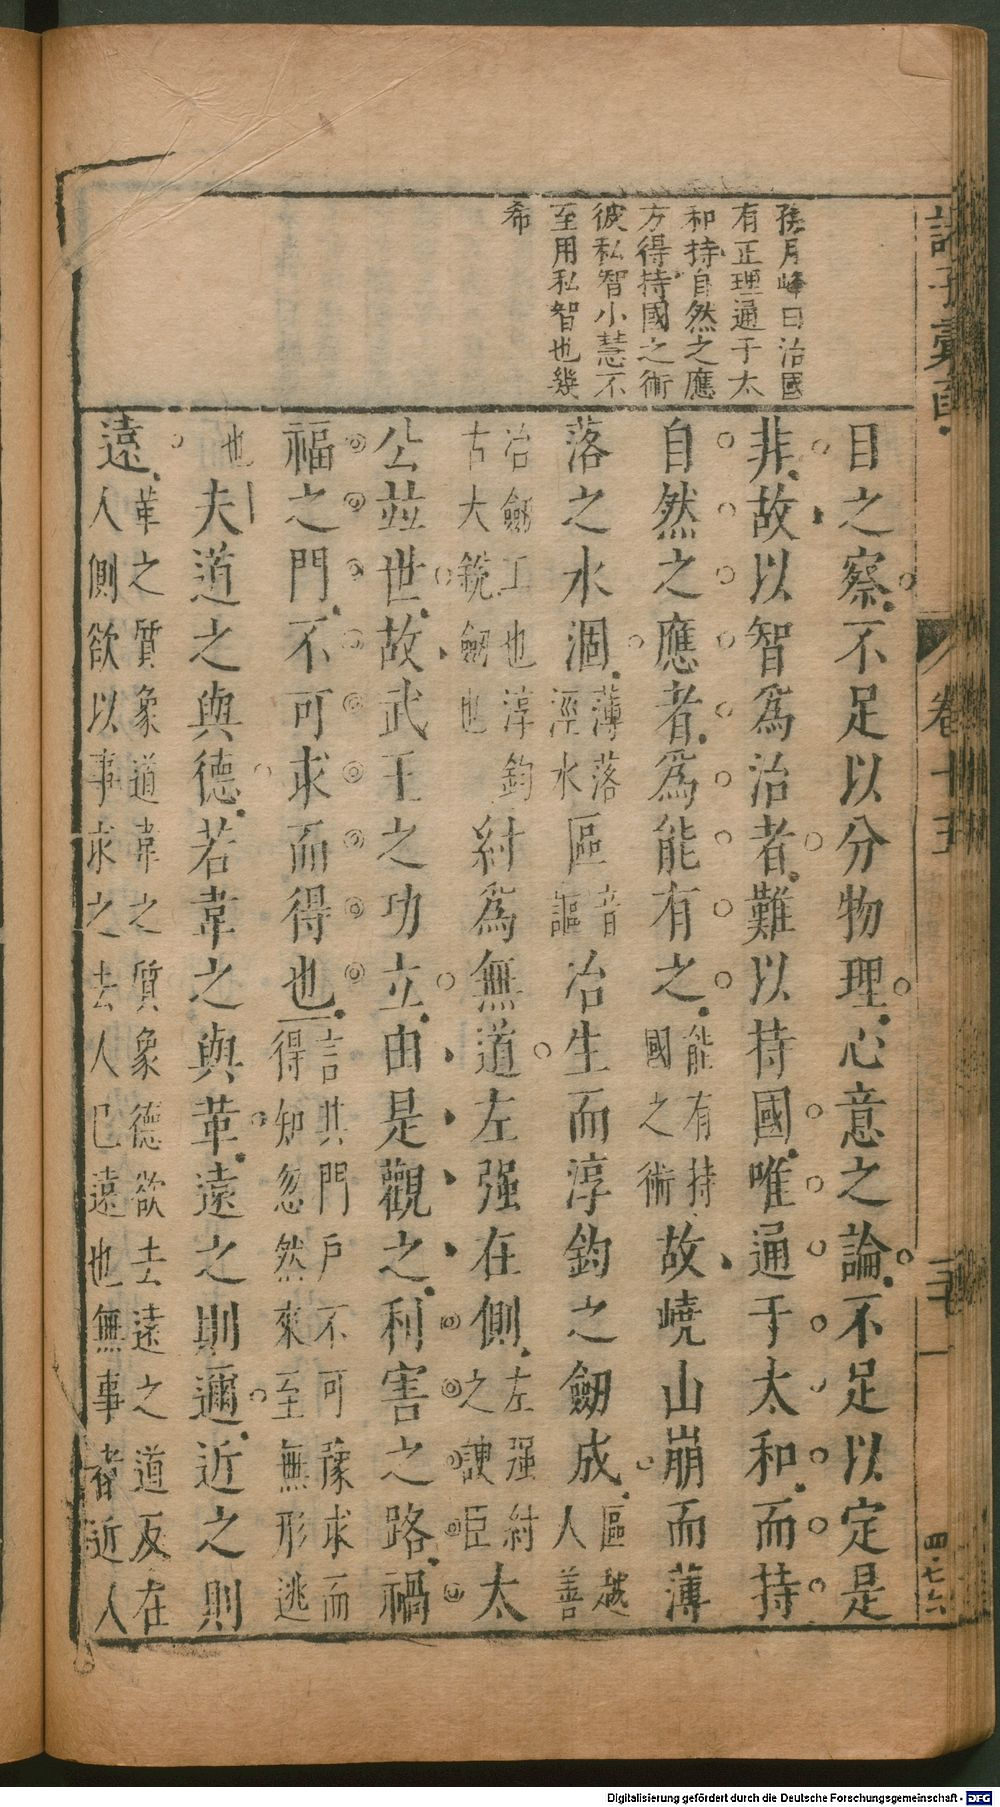 孫月峰曰治國
有正理通于太
和持自然之應
方得持國之術
彼私智小慧不
至用私智也幾
希
目之察不足以分物理心意之論不足以定是
非故以智爲治者難以持國唯通于太和而持
自然之應者爲能有之能有持國之術故嶢山崩而薄
落之水涸薄落涇水區音謳冶生而淳鈞之劒成區越人善
冶劒工也淳鈞古大銳劒也紂爲無道左强在側左强紂之諛臣太
公並世故武王之功立由是觀之利害之路禍
福之門不可求而得也言其門戶不可豫求而得知忽然來至無形逃
也夫道之與德若韋之與革遠之則邇近之則
遠革之質象道韋之質象德欲去遠之道反在人側欲以事求之去人已遠也無事者近人
諸子彙函
卷十五
四七六
Digitalisierung gefördert durch die Deutsche Forschungsgemeinschaft - DFG